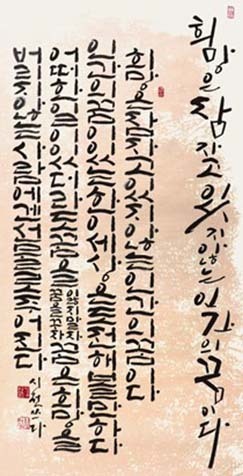 희망은 잠자고 있지않는 인간의 꿈이다
희망은 잠자고 있지않는 인간의 꿈이다
인간의 꿈이 있는 한 이 세상은 도전해 볼만하다
어떠한 일이 있더라도 꿈을 잃지말자 꿈을꾸자 꿈은 희망을
버리지않는 사람에겐 선물로 주어진다
쓰다